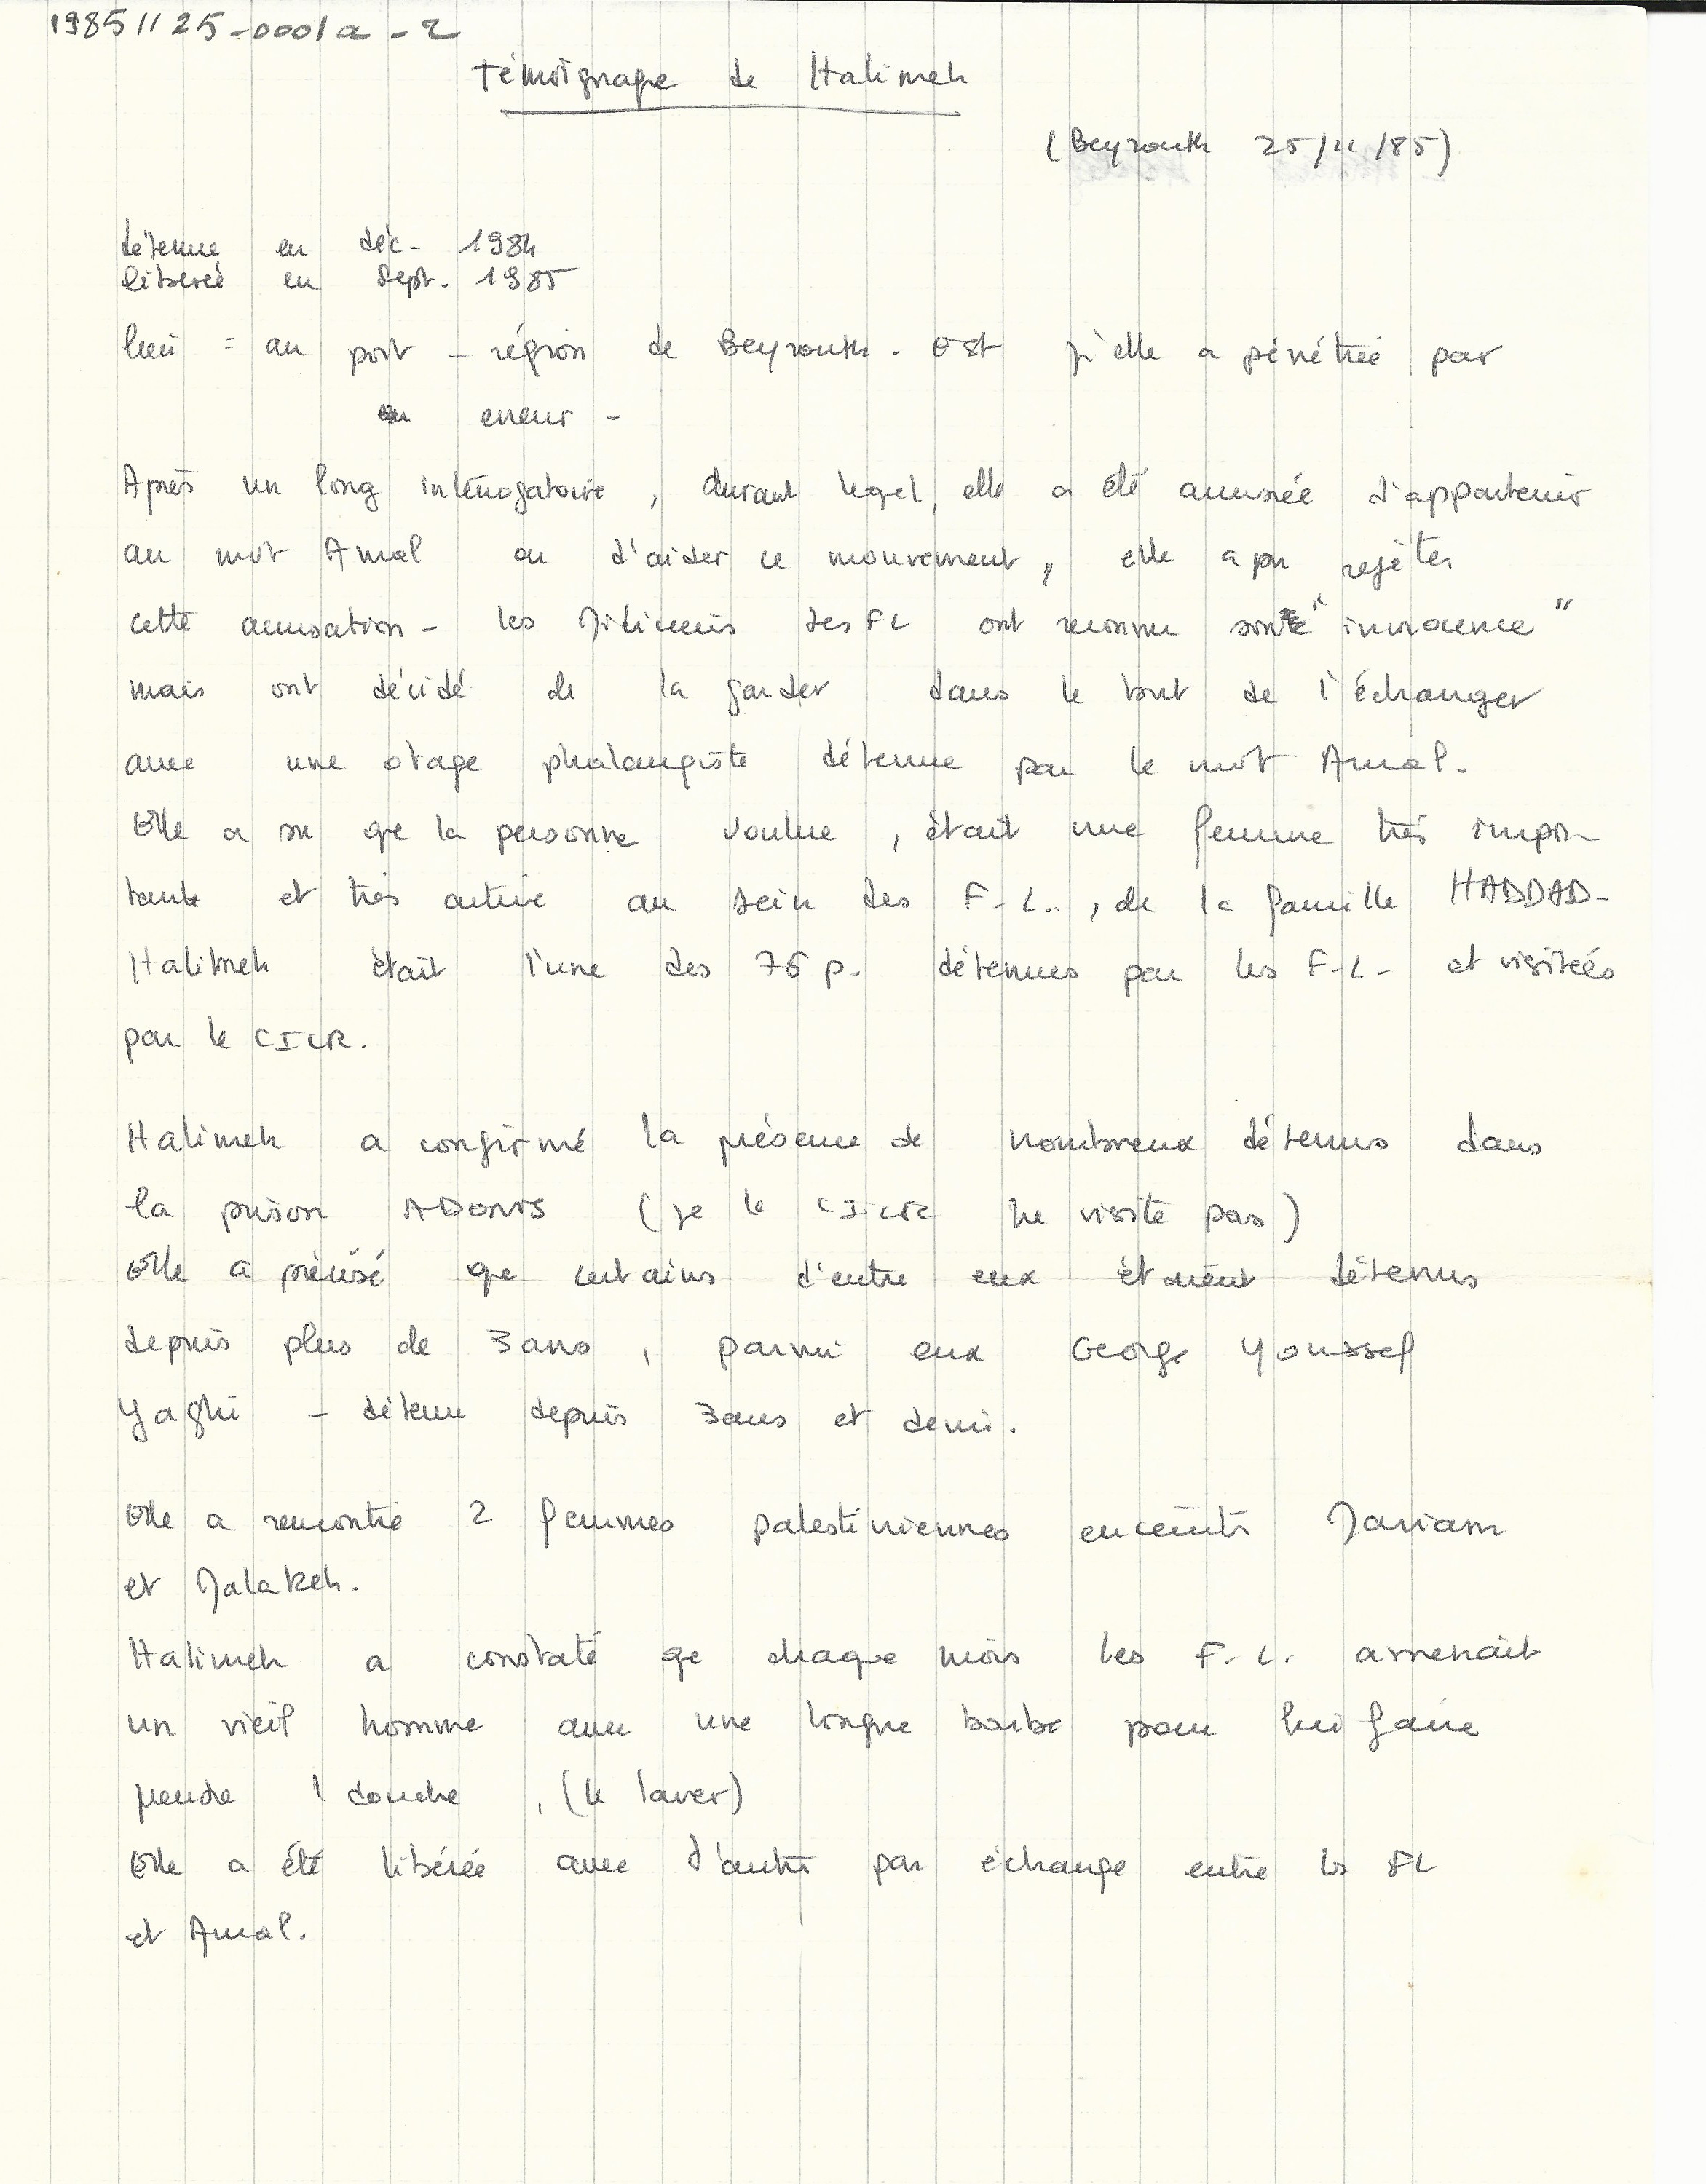 19851125-0001a-2
Témoignage de Halimeh
(Beyrouth 25/11/85)
détenue en déc. 1984
libérée en Sept. 1985
lieu = au port - région de Beyrouth-Est qu'elle a pénétrée par
erreur -
Après un long interrogatoire, durant leqel, elle a été accusée d'appartenir
au mvt Amal ou d'aider ce mouvement, elle a pu rejeter
cette accusation - les Miliciens des FL ont reconnu son "innocence"
mais ont décidé de la garder dans le but de l'échanger
avec une otage phalangiste détenue par le mvt Amal.
Elle a su qe la personne voulue, était une femme très impor-
tante et très active au sein des F.L., de la famille HADDAD-
Halimeh était l'une des 76 p. détenues par les F-L- et visitées
par le CICR.
Halimeh a confirmé la présence de nombreux détenus dans
la prison ADONIS (qe le CICR ne visite pas)
Elle a précisé qe certains d'entre eux étaient détenus
depuis plus de 3 ans, parmi eux George Youssef
Yaghi - détenu depuis 3 ans et demi.
Elle a rencontré 2 femmes palestiniennes enceintes Mariam
et Malakeh.
Halimeh a constaté qe chaque mois les F.L. amenait
un vieil homme avec une longue barbe pour lui faire
prendre 1 douche, (le laver)
Elle a été libérée avec d'autres par échange entre les FL
et Amal.